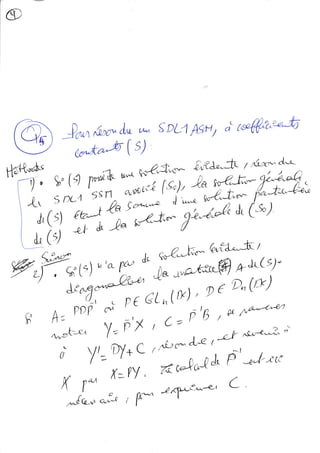 4
P4 Pour résoudre un SDL1 ASM, à coefficients
constants (S)
Méthodes
1) • Si (S) possède une solution évidente, résoudre
le SDL1 SSM associé (So), la solution générale
de (S) étant la somme d'une solution particulière
de (S) et de la solution générale de (So)
Sinon
2) • Si (S) n'a pas de solution évidente,
diagonaliser la matrice A de (S).
Si A = PDP⁻¹ où P ∈ GLn(K), D ∈ Dn(K)
noter Y = P⁻¹X, C = P⁻¹B, se ramener
à Y' = DY + C, résoudre, et revenir à
X par X = PY. Le calcul de P⁻¹ est ici
nécessaire, pour exprimer C.